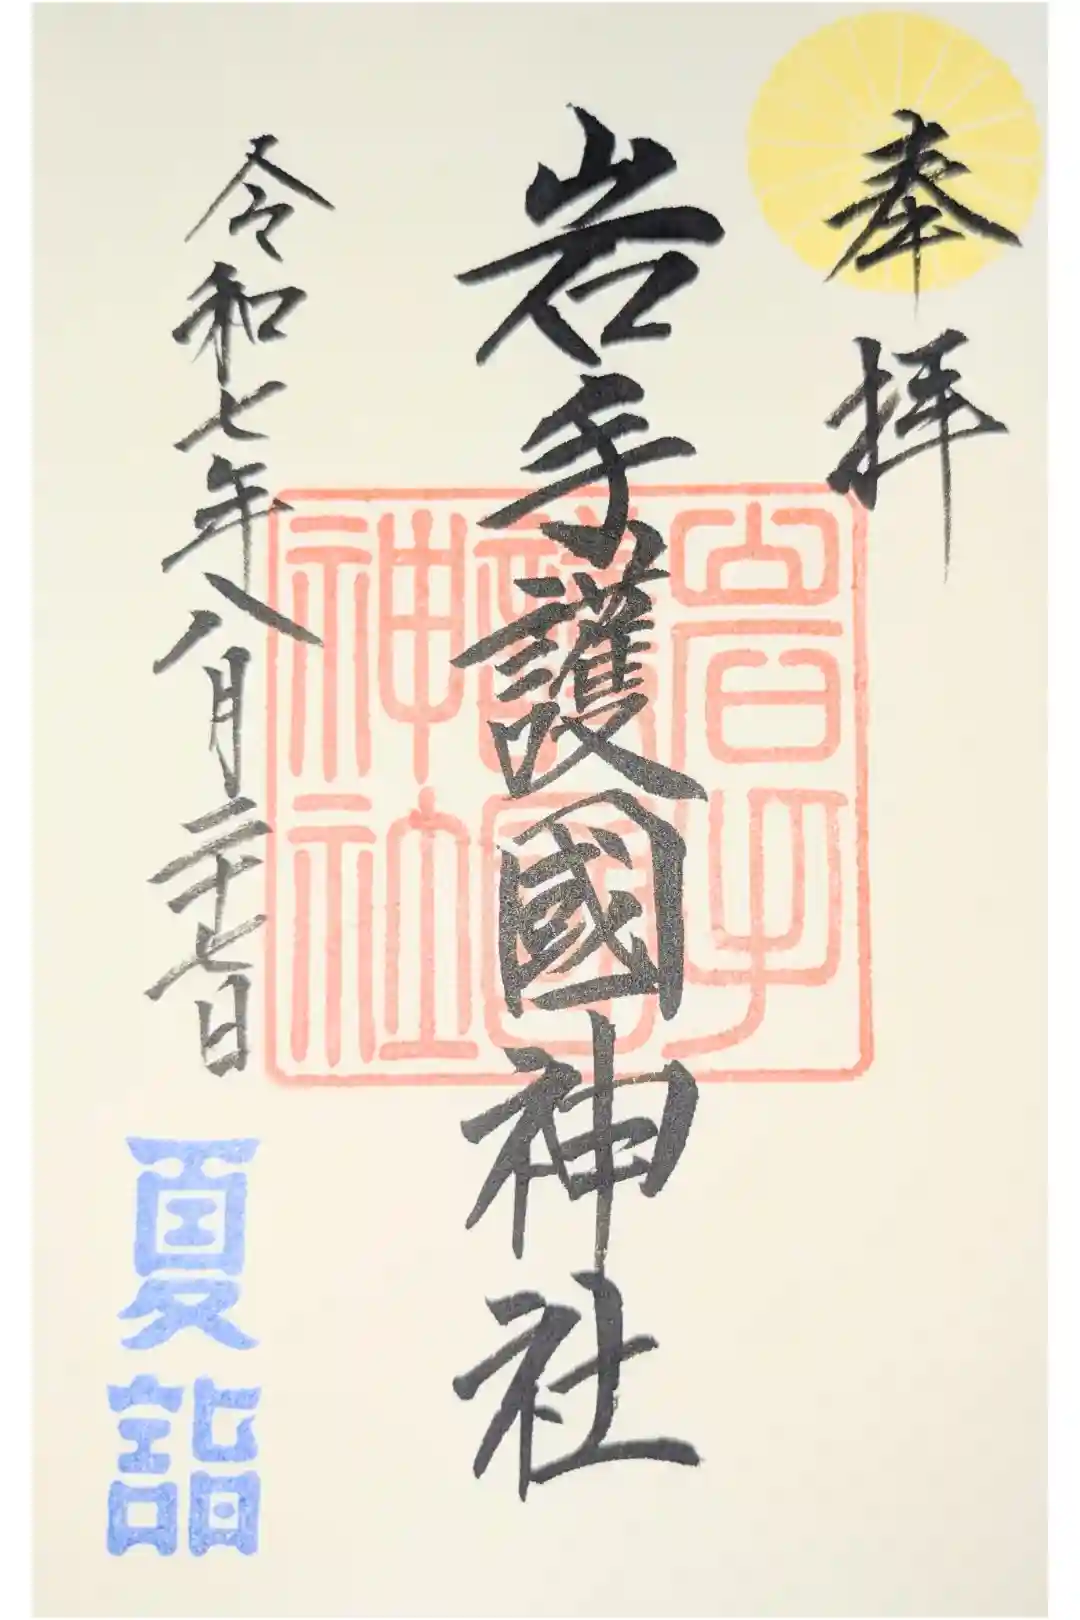 奉拝
岩手護國神社
岩手
護国
神社
令和七年八月二十七日
夏詣